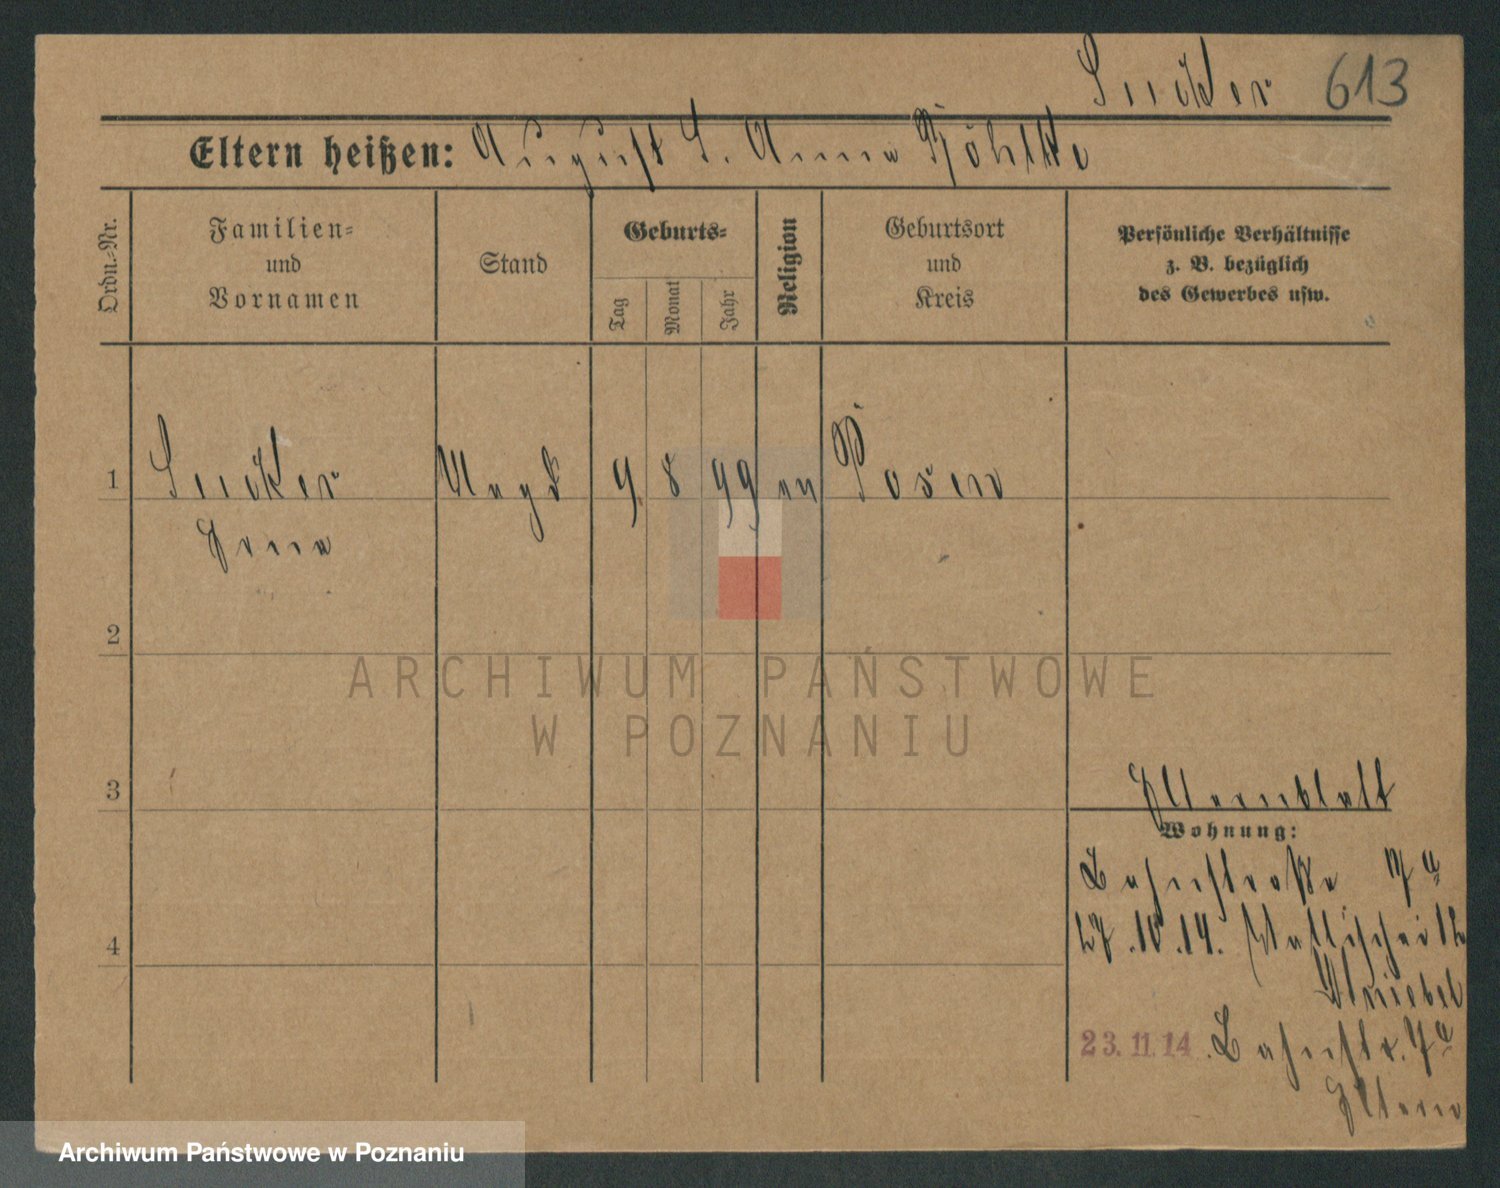 613
Eltern heißen: August S. Anna
Ordn.-Nr.
Familien-
und
Vornamen
Stand
Geburts-
Tag
Monat
Jahr
Religion
Geburtsort
und
Kreis
Persönliche Verhältnisse
z. B. bezüglich
des Gewerbes usw.
1
Magd 9. 8 99 ev Posen
2
ARCHIWUM PAŃSTWOWE
W POZNANIU
3
Elternblatt
Wohnung:
Bahnstraße 7a
4
27.10.14.
23.11.14. Bahnstr. 7a
Eltern
Archiwum Państwowe w Poznaniu